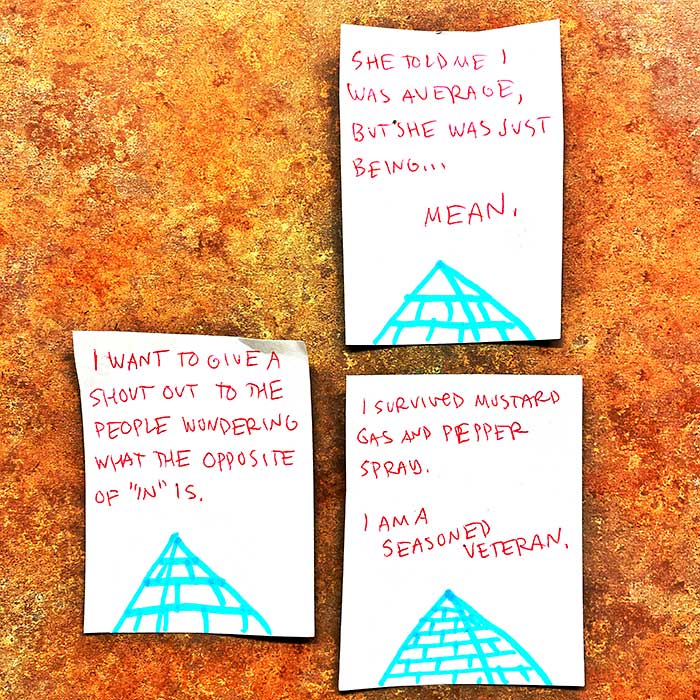 SHE TOLD ME I
WAS AVERAGE,
BUT SHE WAS JUST
BEING...
MEAN.
I WANT TO GIVE A
SHOUT OUT TO THE
PEOPLE WONDERING
WHAT THE OPPOSITE
OF "IN" IS.
I SURVIVED MUSTARD
GAS AND PEPPER
SPRAY.
I AM A
SEASONED
VETERAN.